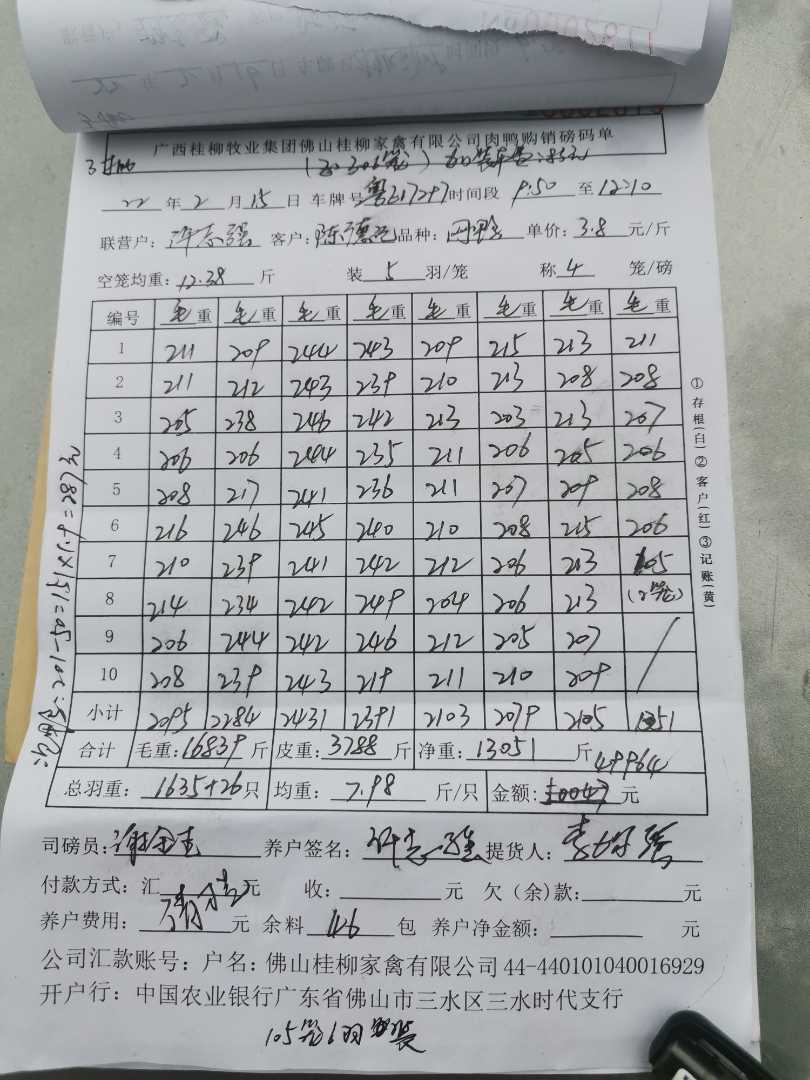 广西桂柳牧业集团佛山桂柳家禽有限公司肉鸭购销磅码单
22 年 2 月 15 日 车牌号 粤E17297 时间段 9:50 至 12:10
联营户: 许志强 客户: 品种: 单价: 3.8 元/斤
空笼均重: 12.38 斤 装 5 羽/笼 称 4 笼/磅
编号 毛重 毛重 毛重 毛重 毛重 毛重 毛重 毛重
1 211 209 244 243 209 215 213 211
2 211 212 243 239 210 213 208 208
3 205 238 246 242 213 203 213 207
4 206 206 244 235 211 206 205 206
5 208 217 241 236 211 207 209 208
6 216 246 245 240 210 208 215 206
7 210 239 241 242 212 206 213 105
8 214 234 242 249 204 206 213 (2笼)
9 206 244 242 246 212 205 207 /
10 208 239 243 219 211 210 209
小计 2095 2284 2431 2391 2103 2079 2105 1351
合计 毛重: 16839 斤 皮重: 3788 斤 净重: 13051 斤
49964
总羽重: 1635+26 只 均重: 7.98 斤/只 金额: 元
司磅员: 养户签名: 许志强 提货人:
付款方式: 汇 元 收: 元 欠(余)款: 元
养户费用: 元 余料 146 包 养户净金额: 元
公司汇款账号: 户名: 佛山桂柳家禽有限公司 44-440101040016929
开户行: 中国农业银行广东省佛山市三水区三水时代支行
105笼6羽装
①存根(白)②客户(红)③记账(黄)